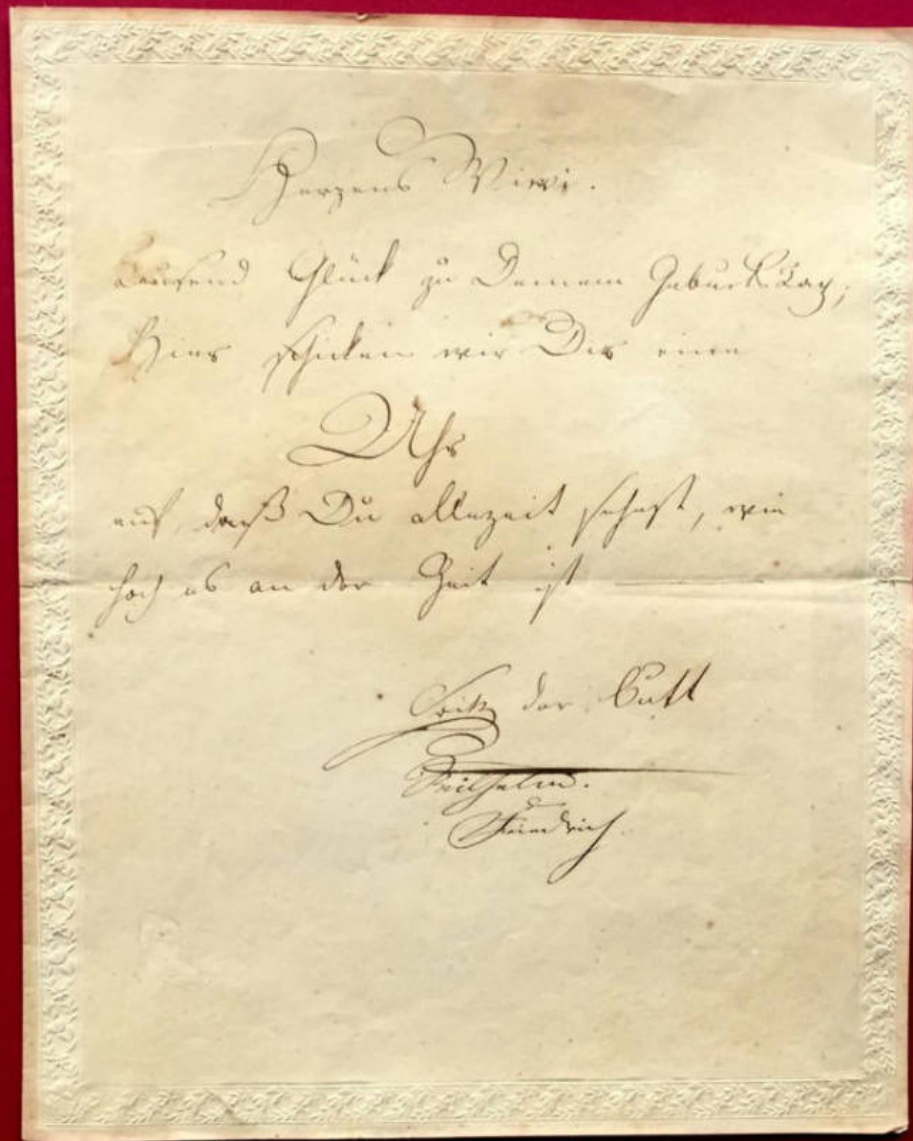 Herzens Wiwi.
Tausend Glück zu Deinem Geburtstag;
Hier schicken wir Dir eine
Uhr
auf, daß Du allezeit sehest, wie
hoch es an der Zeit ist
Fritz der
Wilhelm.
Friedrich.